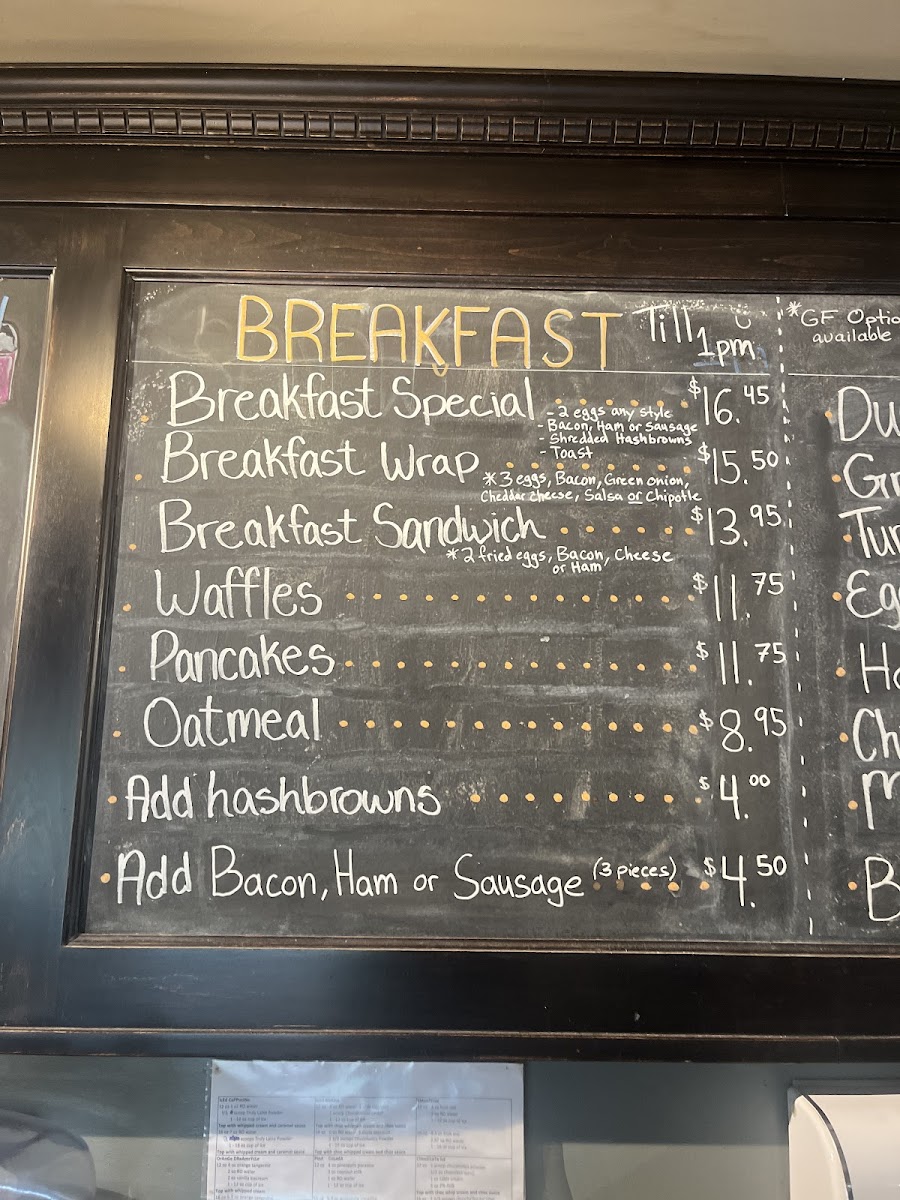 BREAKFAST Till 1pm
Breakfast Special $16.45
- 2 eggs any style
- Bacon, Ham or Sausage
- Shredded Hashbrowns
- Toast
Breakfast Wrap $15.50
* 3 eggs, Bacon, Green onion,
Cheddar cheese, Salsa or Chipotle
Breakfast Sandwich $13.95
* 2 fried eggs, Bacon, Cheese
or Ham
Waffles $11.75
Pancakes $11.75
Oatmeal $8.95
Add hashbrowns $4.00
Add Bacon, Ham or Sausage (3 pieces) $4.50
*GF Optio
available
Du
Gr
Tur
Eg
Ho
Ch
M
B